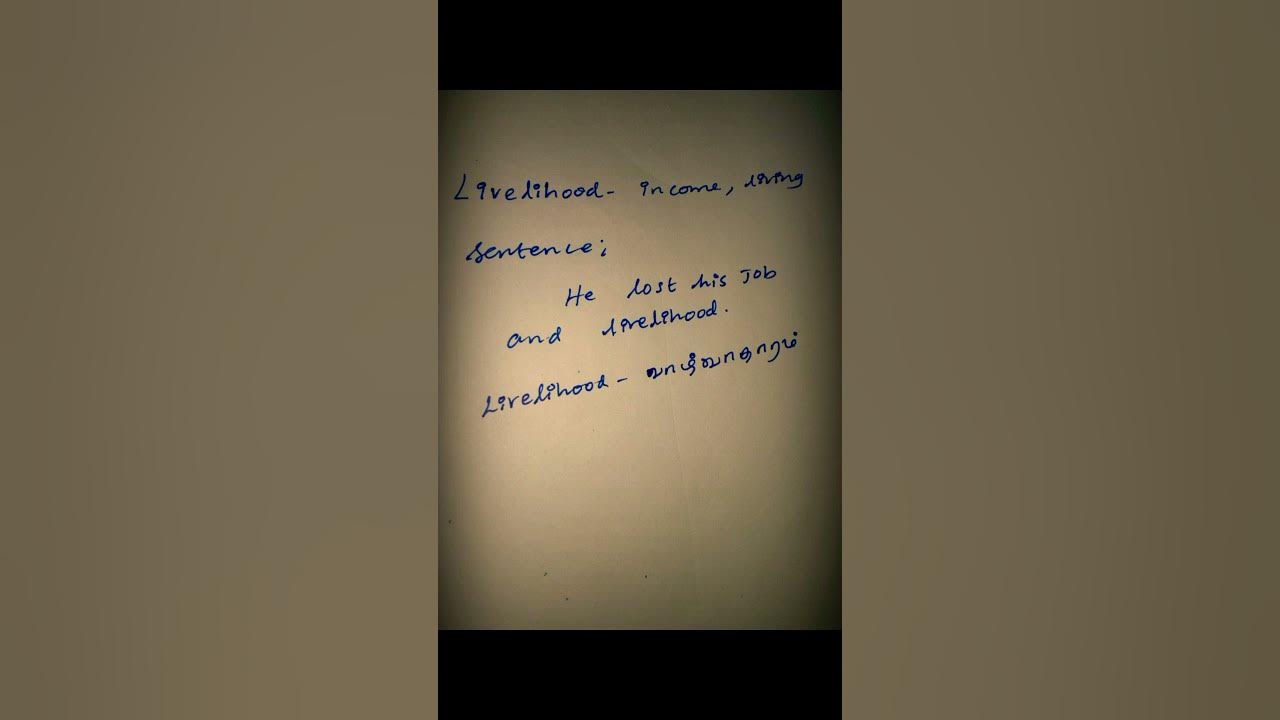 Livelihood - income, living
sentence;
He lost his Job
and livelihood.
Livelihood - வாழ்வாதாரம்